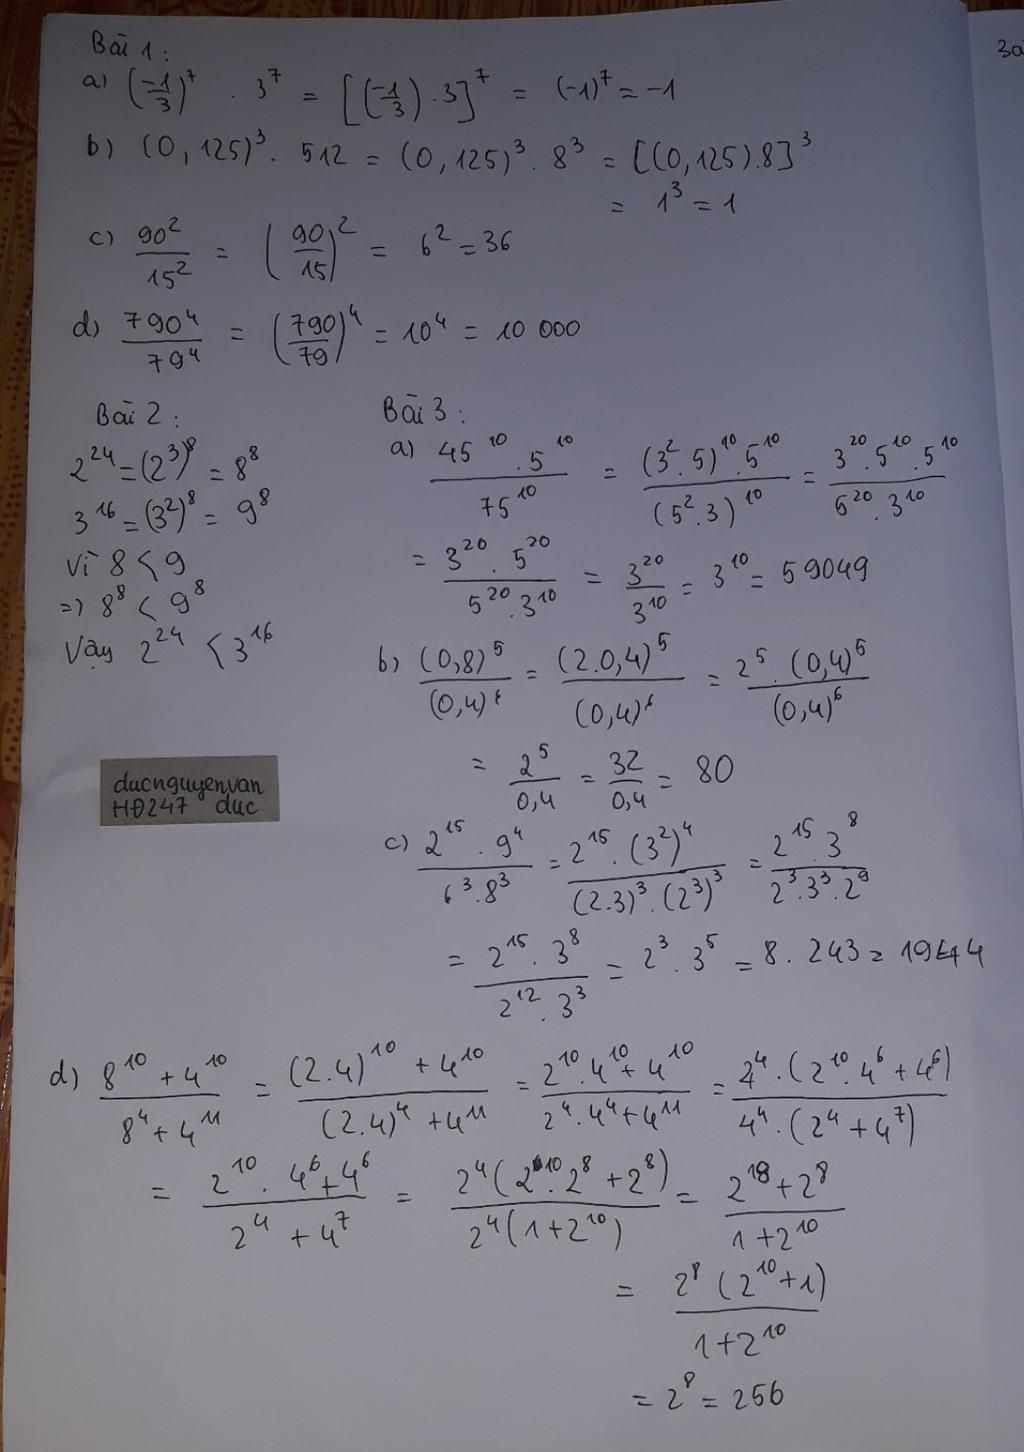 Bài 1:
a) (-1/3)^7 . 3^7 = [(-1/3) . 3]^7 = (-1)^7 = -1
b) (0,125)^3 . 512 = (0,125)^3 . 8^3 = [(0,125).8]^3
= 1^3 = 1
c) 90^2/15^2 = (90/15)^2 = 6^2 = 36
d) 790^4/79^4 = (790/79)^4 = 10^4 = 10 000
Bài 2:
2^24 = (2^3)^8 = 8^8
3^16 = (3^2)^8 = 9^8
Vì 8 < 9
=) 8^8 < 9^8
Vậy 2^24 < 3^16
Bài 3:
a) 45^10 . 5^10 / 75^10 = (3^2 . 5)^10 . 5^10 / (5^2 . 3)^10 = 3^20 . 5^10 . 5^10 / 5^20 . 3^10
= 3^20 . 5^20 / 5^20 . 3^10 = 3^20 / 3^10 = 3^10 = 59049
b) (0,8)^5 / (0,4)^6 = (2.0,4)^5 / (0,4)^6 = 2^5 . (0,4)^5 / (0,4)^6
= 2^5 / 0,4 = 32 / 0,4 = 80
c) 2^15 . 9^4 / 6^3 . 8^3 = 2^15 . (3^2)^4 / (2.3)^3 . (2^3)^3 = 2^15 . 3^8 / 2^3 . 3^3 . 2^9
= 2^15 . 3^8 / 2^12 . 3^3 = 2^3 . 3^5 = 8 . 243 = 1944
d) 8^10 + 4^10 / 8^4 + 4^11 = (2.4)^10 + 4^10 / (2.4)^4 + 4^11 = 2^10 . 4^10 + 4^10 / 2^4 . 4^4 + 4^11 = 4^4 . (2^10 . 4^6 + 4^6) / 4^4 . (2^4 + 4^7)
= 2^10 . 4^6 + 4^6 / 2^4 + 4^7 = 2^4 (2^10 . 2^8 + 2^8) / 2^4 (1 + 2^10) = 2^18 + 2^8 / 1 + 2^10
= 2^8 (2^10 + 1) / 1 + 2^10
= 2^8 = 256
ducnguyenvan
HĐ247 duc